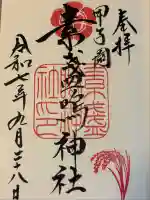 奉拝
甲子園
素盞嗚神社
令和七年九月二十八日